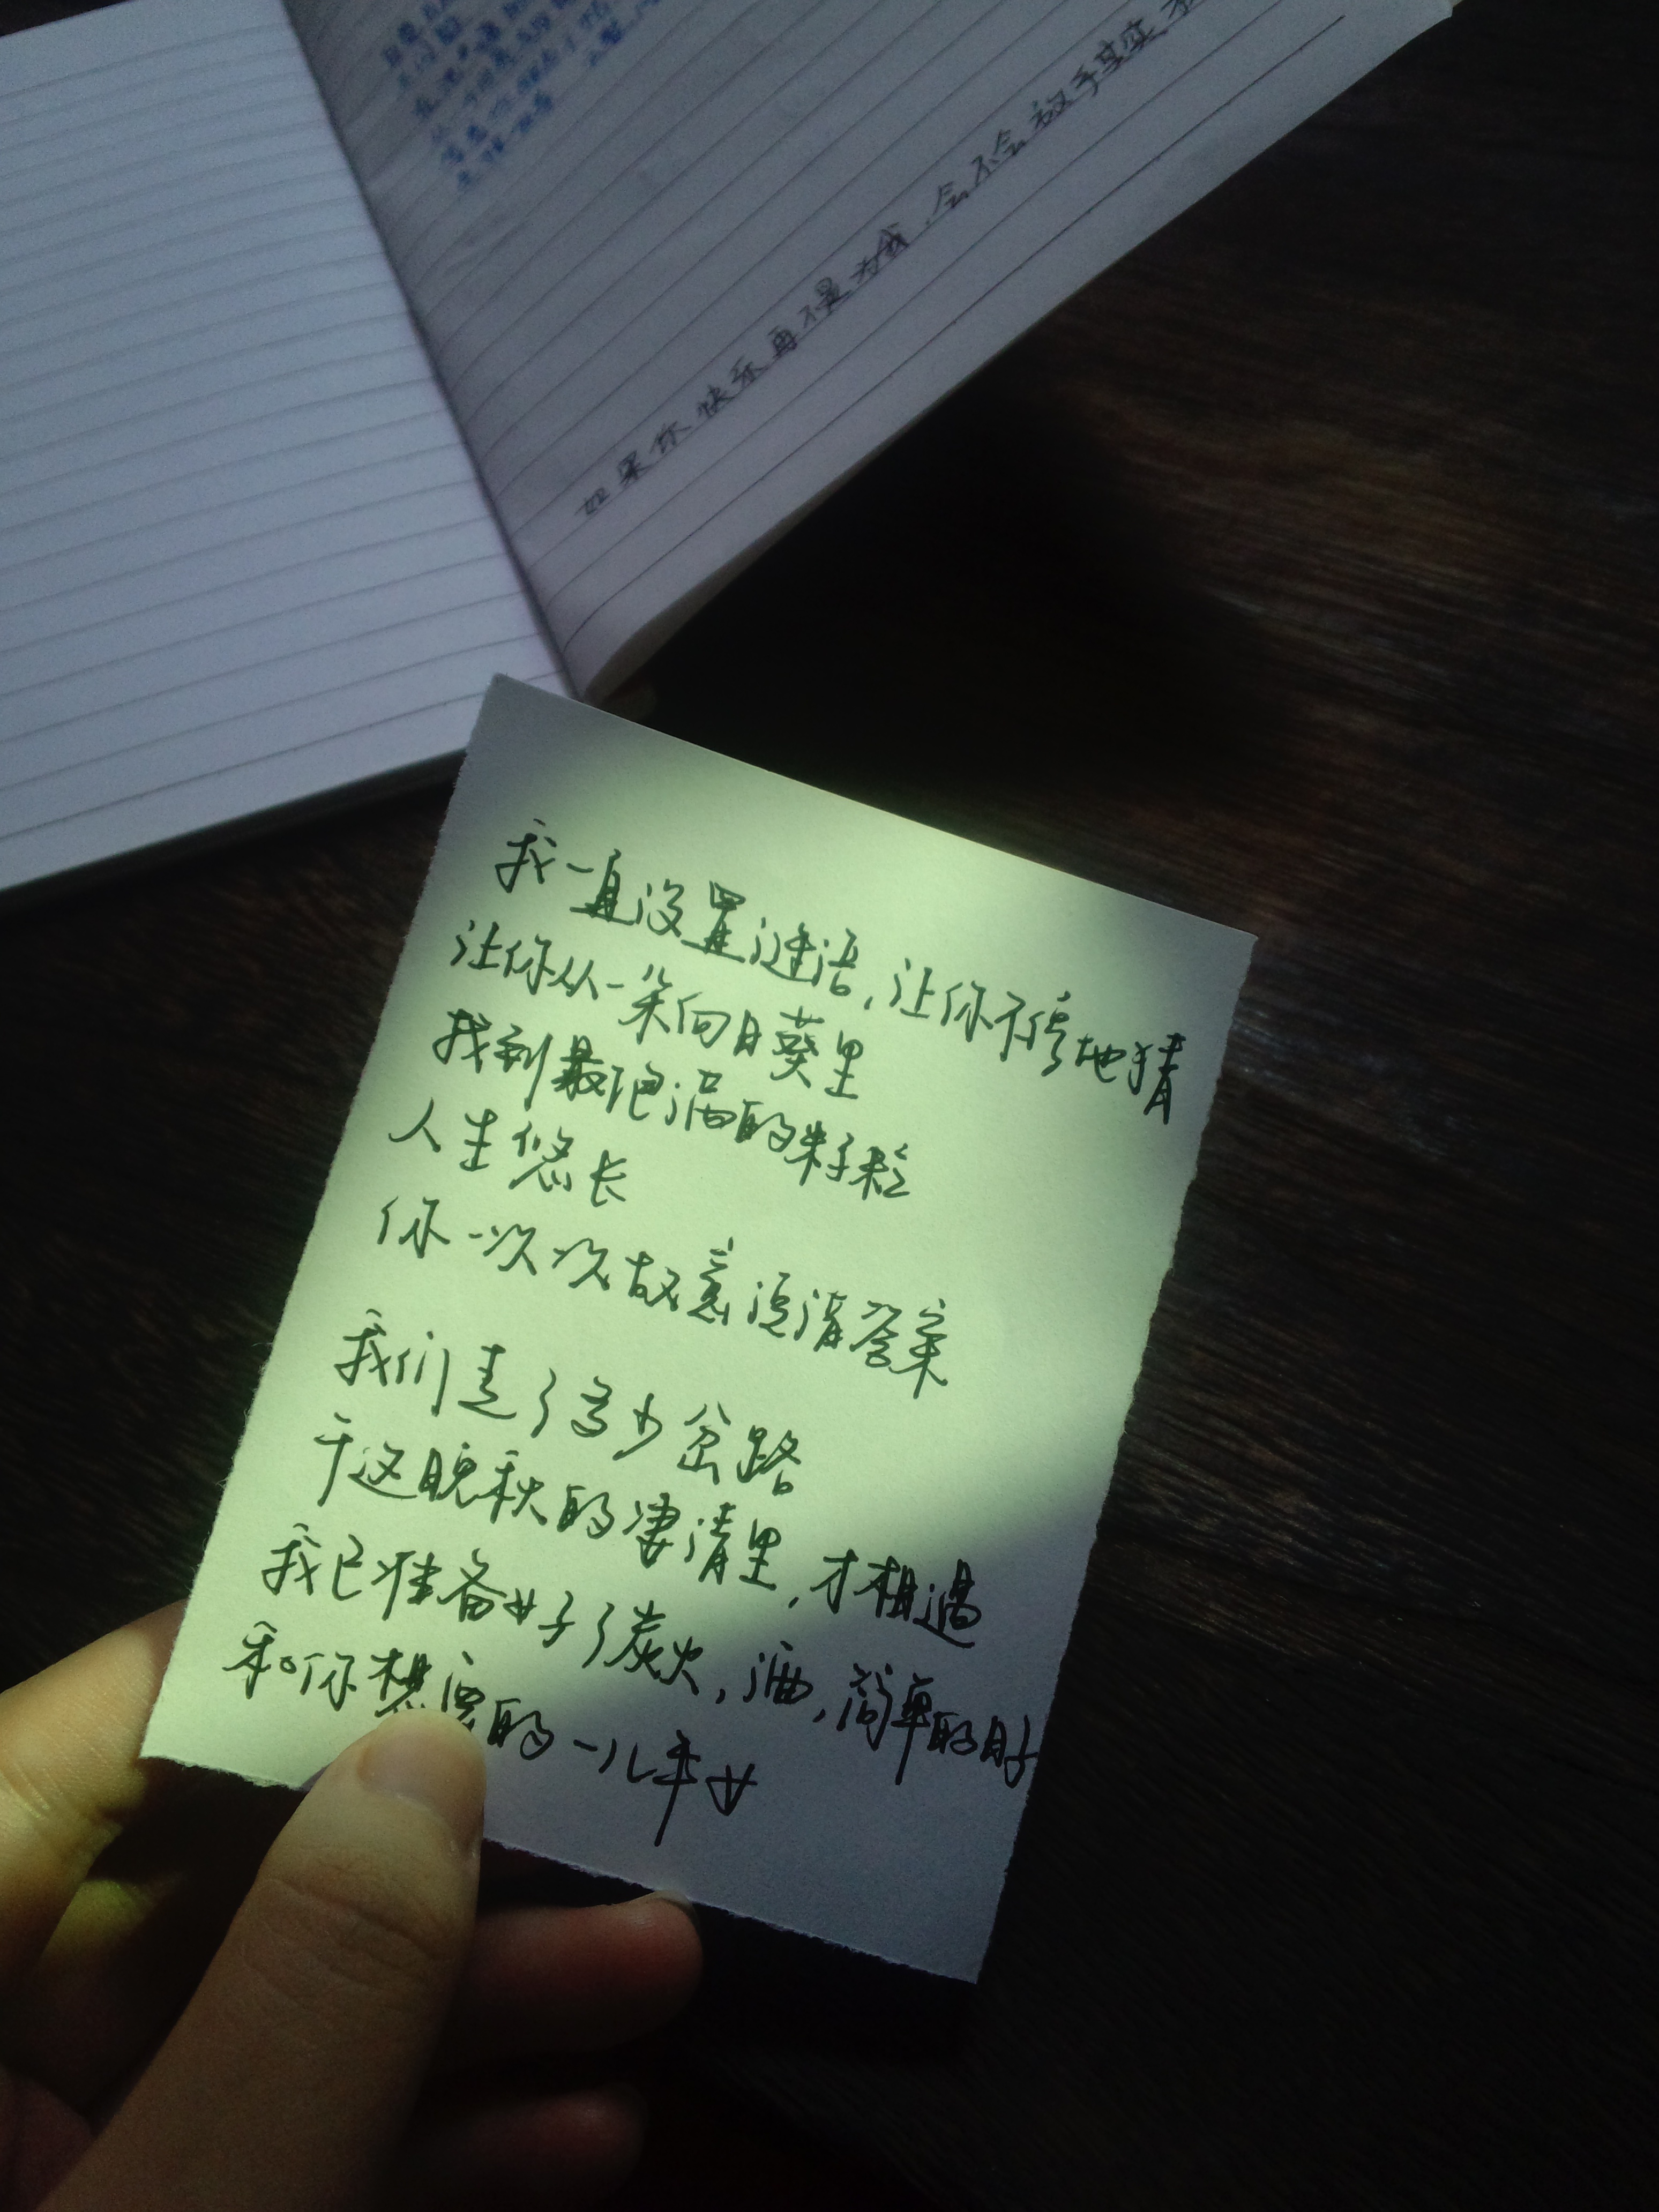 如果你快乐再不是为我,会不会放手其实
我一直设置谜语,让你不停地猜
让你从一朵向日葵里
找到最饱满的籽粒
人生悠长
你一次次故意说错答案
我们走了多少岔路
于这晚秋的凄清里,才相遇
我已准备好了炭火,酒,简单的
和你想要的一儿半女